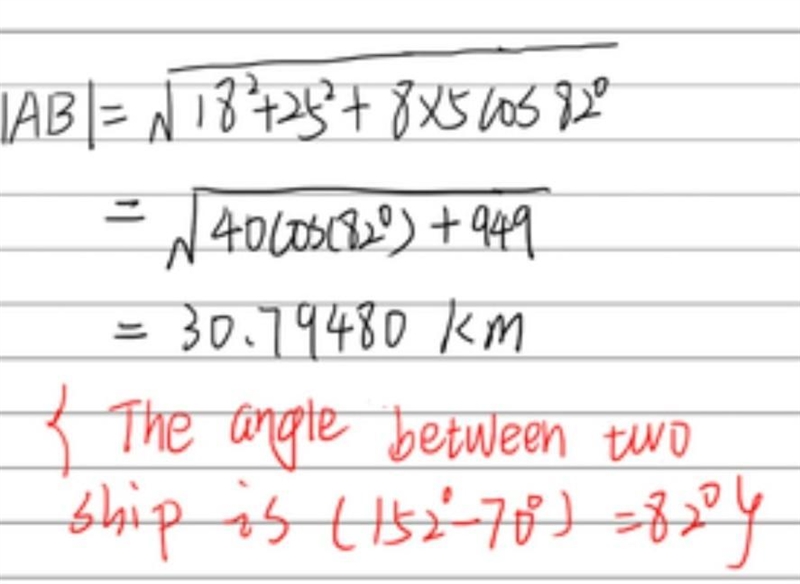 |AB| = √18²+25²+ 8×5 cos 82°
= √40cos(82°) + 949
= 30.79480 km
{ The angle between two
ship is (152°-70°) =82° }